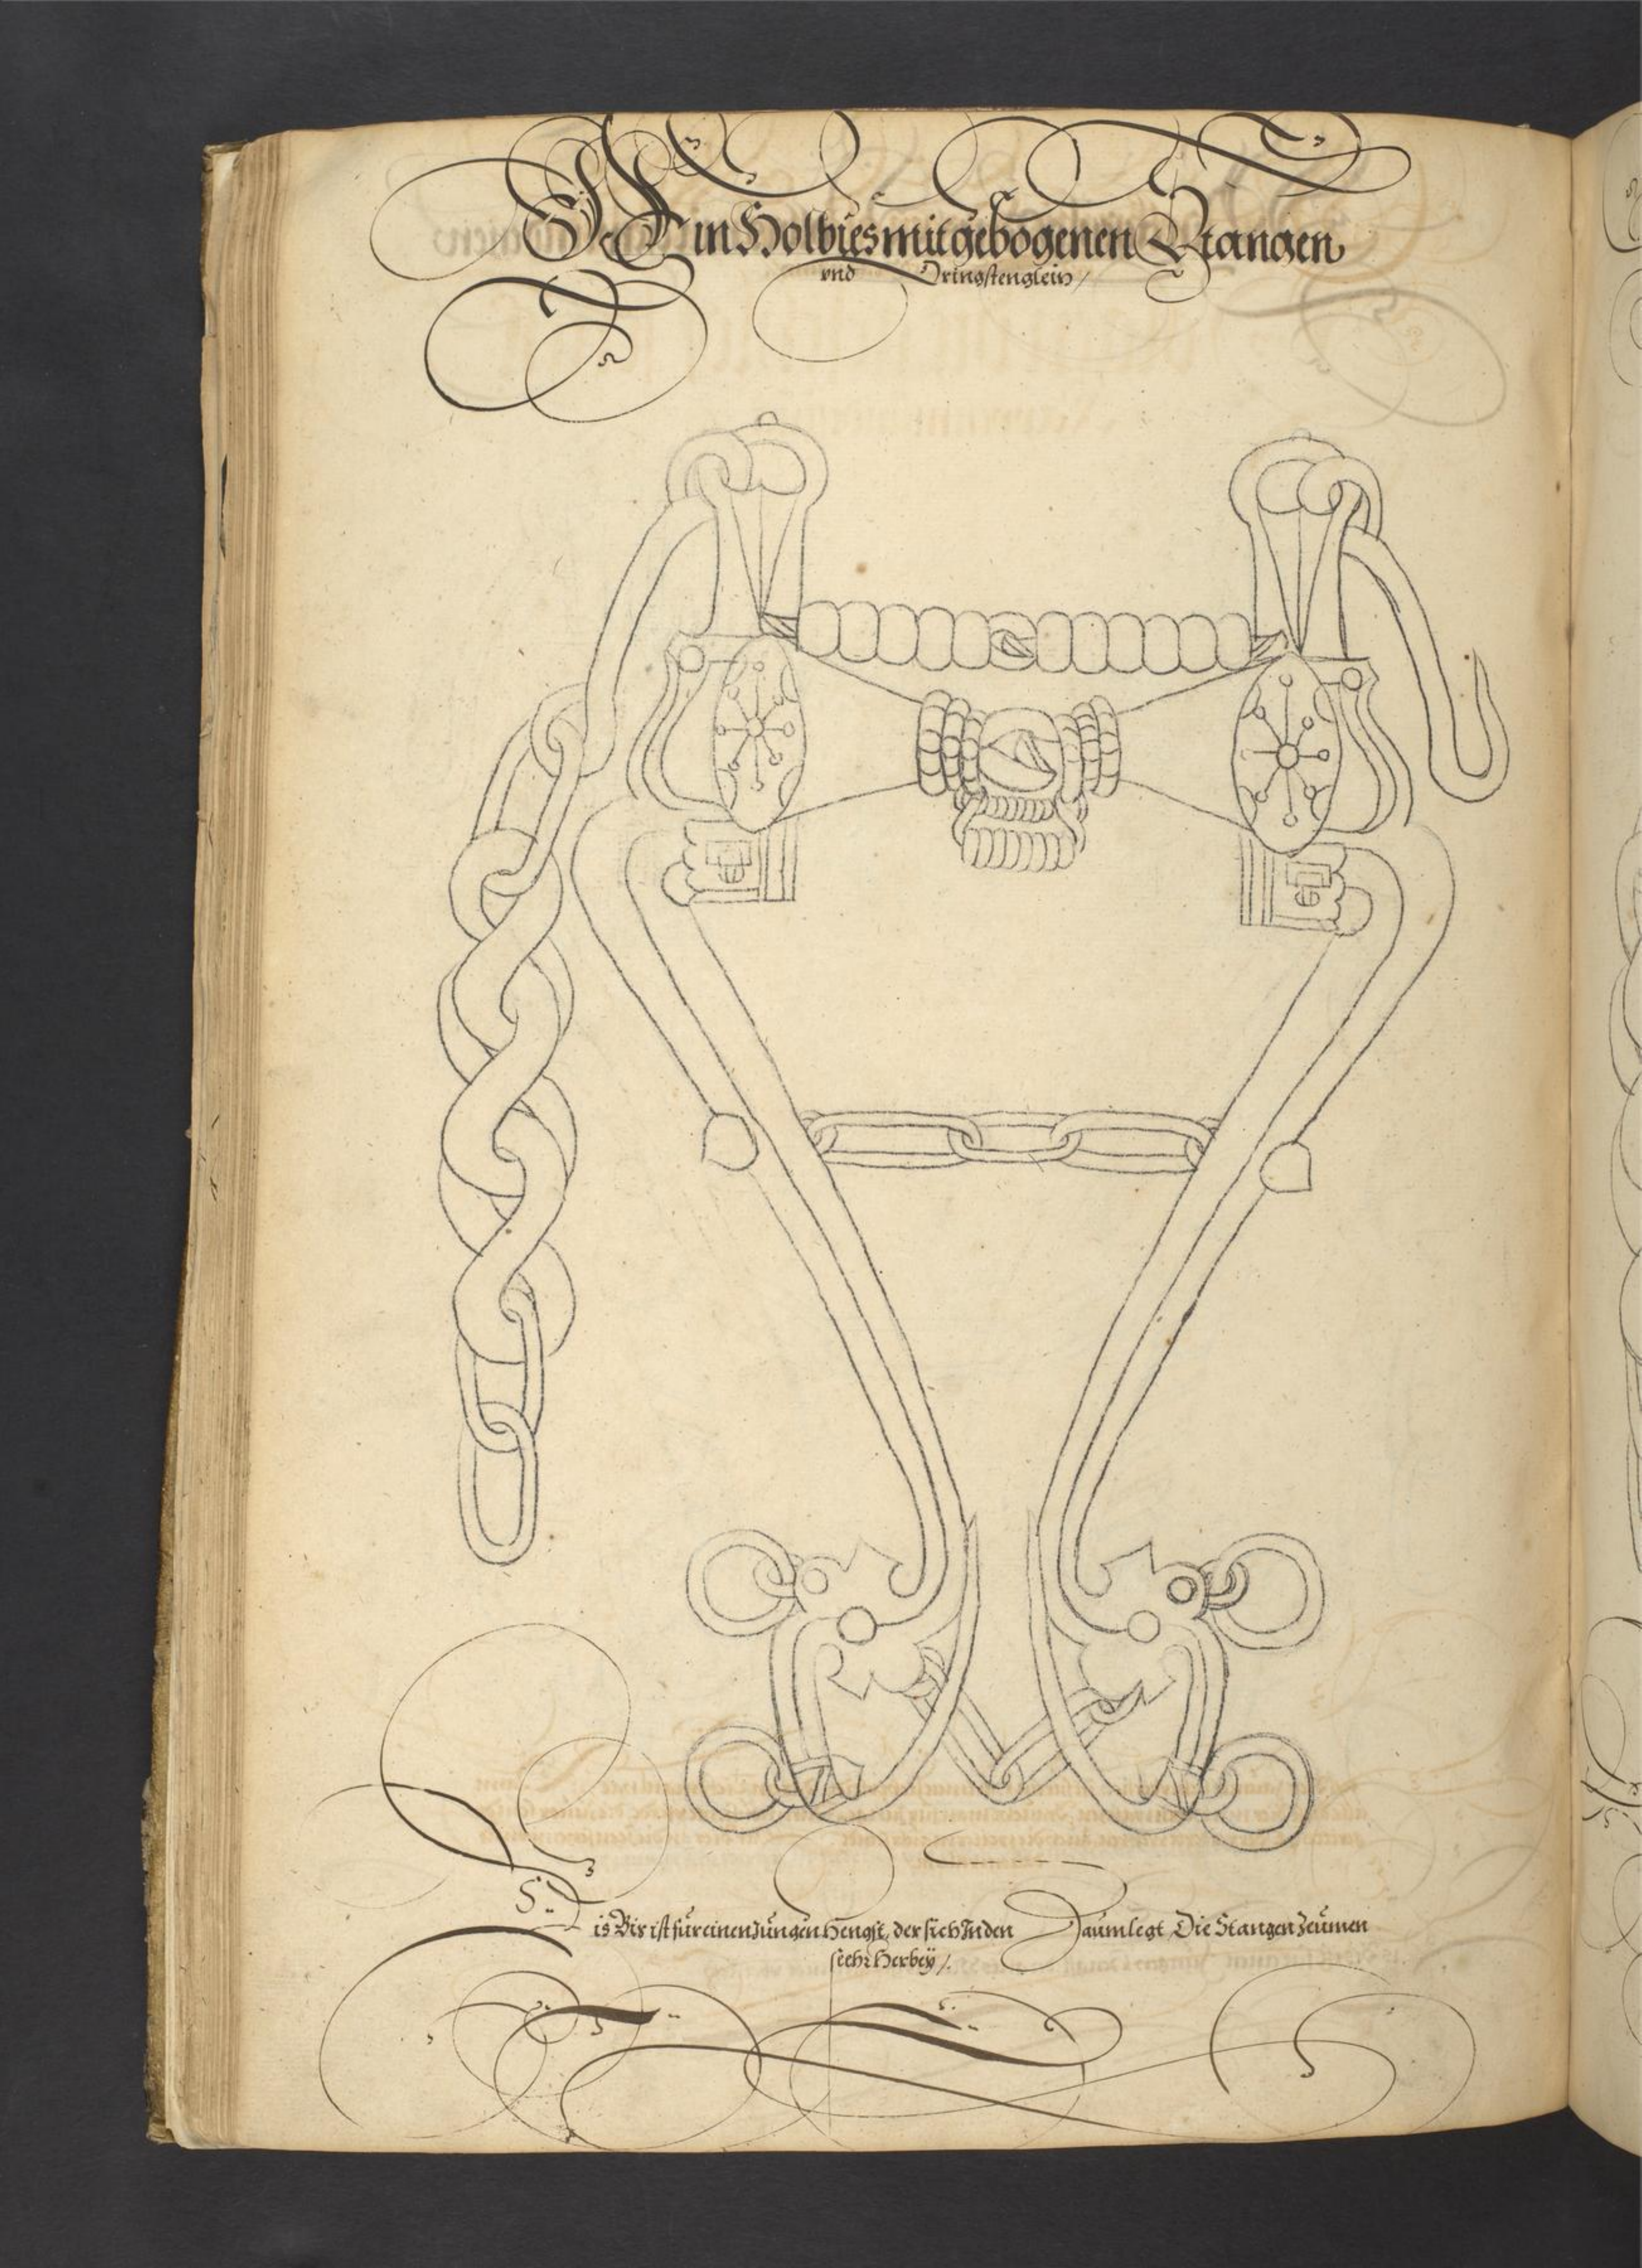 Ein Holbies mit gebogenen Stangen
vnd Dringstenglein /
Dis Bis ist für einen Jungen Hengst, der sich In den Zaum legt, Die Stangen Zeümen
seehr Herbeÿ /.